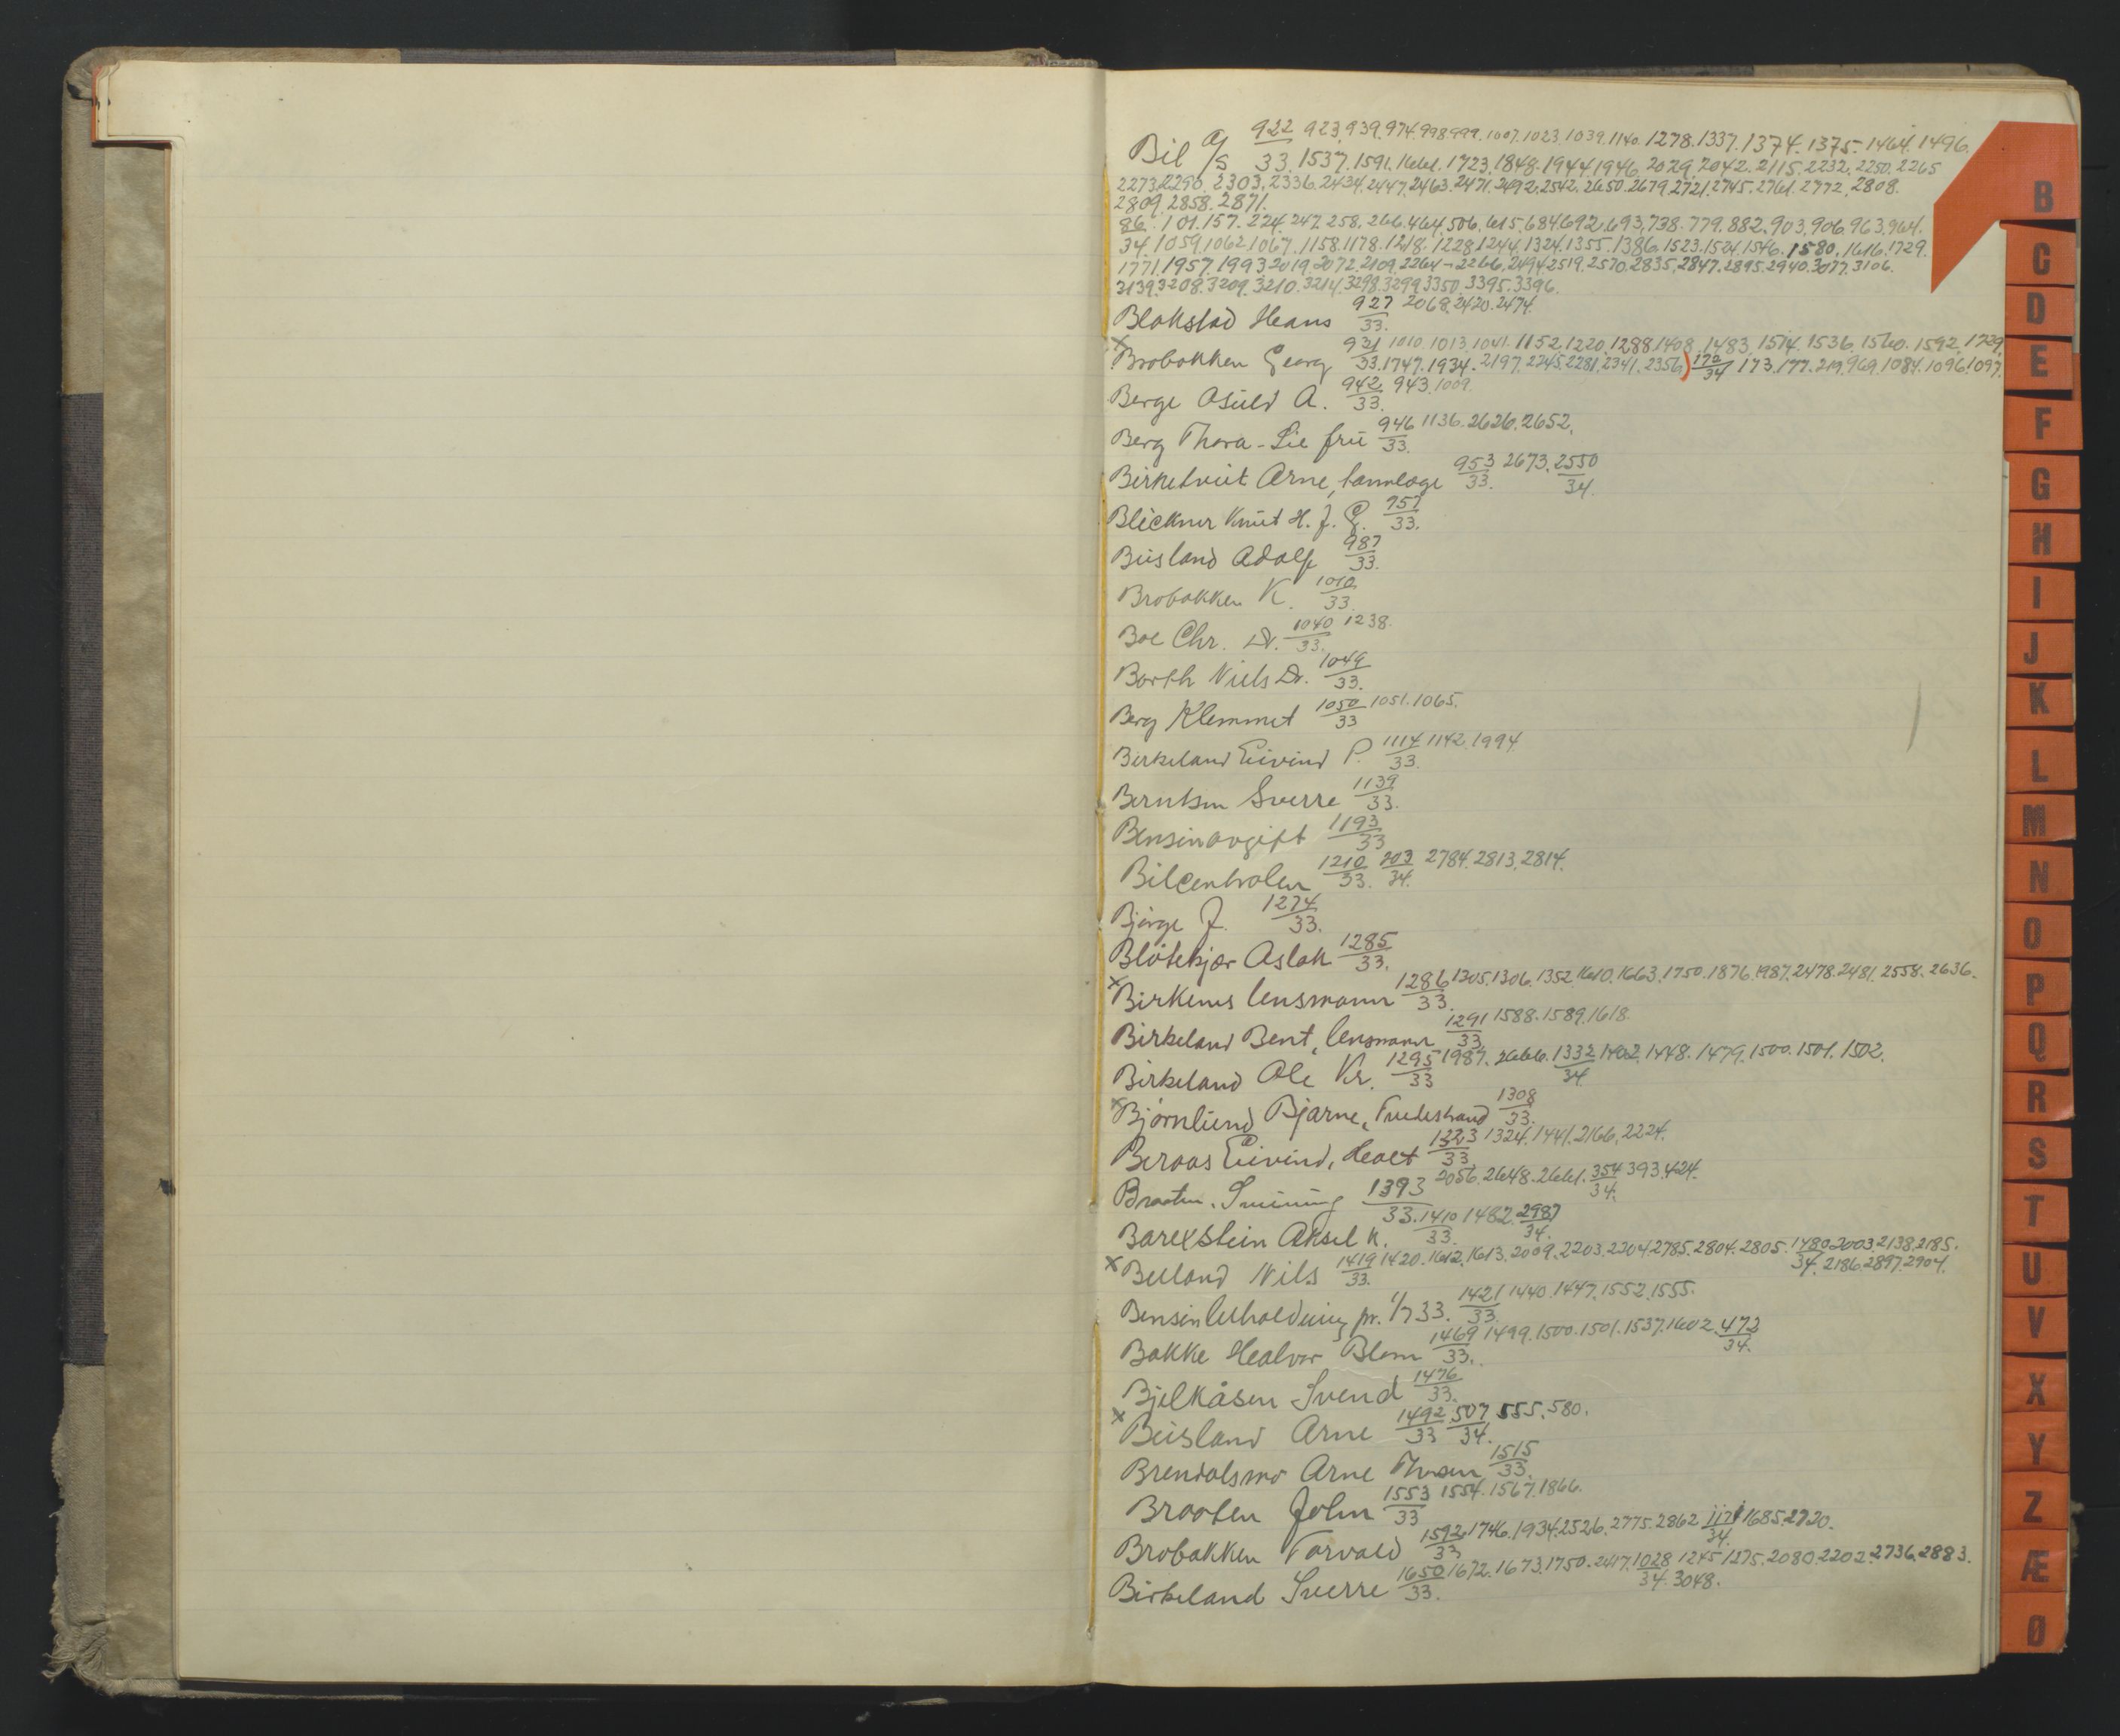 Bil A/S 922 923. 939. 974. 998 999. 1007. 1023. 1039. 1140. 1278. 1337. 1374. 1375. 1464. 1496.
33. 1537. 1591. 1661. 1723. 1848. 1944. 1946. 2029. 2042. 2115. 2232. 2250. 2265
2273. 2290. 2303. 2336. 2434. 2447. 2463. 2471. 2492. 2542. 2650. 2679. 2721. 2745. 2761. 2772. 2808.
2809. 2858. 2871.
86. 101. 157. 224. 247. 258. 266. 464. 506. 615. 684. 692. 693. 738. 779. 882. 903. 906. 963. 964.
34. 1059. 1062. 1067. 1158. 1178. 1218. 1228. 1244. 1324. 1355. 1386. 1523. 1524. 1546. 1580. 1616. 1729.
1771. 1957. 1993. 2019. 2072. 2109. 2264-2266. 2494. 2519. 2570. 2835. 2847. 2895. 2940. 3077. 3106.
3139. 3208. 3209. 3210. 3214. 3298. 3299. 3350. 3395. 3396.
Blakstad Hans 927/33. 2068. 2420. 2474.
x Brobakken Georg 931/33. 1010. 1013. 1041. 1152. 1220. 1288. 1408. 1483. 1514. 1536. 1560. 1592. 1729.
1747. 1934. 2197. 2245. 2281. 2341. 2356) 172/34 173. 177. 219. 969. 1084. 1096. 1097.
Berge Asuld A. 942/33. 943. 1009.
Berg Thora-Lie frü 946/33. 1136. 2626. 2652.
Birketveit Arne, tannlæge 953/33. 2673. 2550/34.
Blickner Knut H. J. G. 957/33.
Buisland Adolf 987/33.
Brobakken K. 1010/33.
Boe Chr. Dr. 1040/33. 1238.
Barth Niels Dr. 1049/33.
Berg Klemmet 1050/33 1051. 1065.
Birkeland Eivind P. 1114/33. 1142. 1994
Berntsen Sverre 1139/33.
Bensinavgift 1193/33
Bilcentralen 1210/33. 203/34. 2784. 2813. 2814.
Bjørge J. 1274/33.
Bløtekjær Aslak 1285/33.
x Birkenes lensmann 1286/33. 1305. 1306. 1352. 1610. 1663. 1750. 1876. 1987. 2478. 2481. 2558. 2636.
Birkeland Bent, lensmann 1291/33. 1588. 1589. 1618.
Birkeland Ole Kr. 1295/33 1987. 2666. 1332/34 1402. 1448. 1479. 1500. 1501. 1502.
x Bjørnlund Bjarne, Tvedestrand 1308/33.
Beraas Eivind, Holt 1323/33 1324. 1441. 2166. 2224.
Braaten. 1393/33. 2056. 2648. 2661. 354/34. 393. 424.
Barexstein Aksel K. 1410/33. 1482. 2987/34.
x Beuland Nils 1419/33. 1420. 1612. 1613. 2009. 2203. 2204. 2785. 2804. 2805. 1480/34. 2003. 2138. 2185.
2186. 2897. 2904.
Bensinbeholdning pr. 1/7 33. 1421/33. 1440. 1447. 1552. 1555.
Bakke Halvor Blom 1469/33. 1499. 1500. 1501. 1537. 1602. 472/34.
Bjelkåsen Svend 1476/33.
x Beisland Arne 1492/33 507/34. 555. 580.
Brendalsmo Arne Thorsen 1515/33.
Braaten John 1553/33 1554. 1567. 1866.
Brobakken Torvald 1592/33 1746. 1934. 2526. 2775. 2862 1171/34. 1685. 2720.
Birkeland Sverre 1650/33. 1672. 1673. 1750. 2417. 1028/34. 1245 1275. 2080. 2202. 2736. 2883.
3048.
B
C
D
E
F
G
H
I
J
K
L
M
N
O
P
Q
R
S
T
U
V
X
Y
Z
Æ
Ø